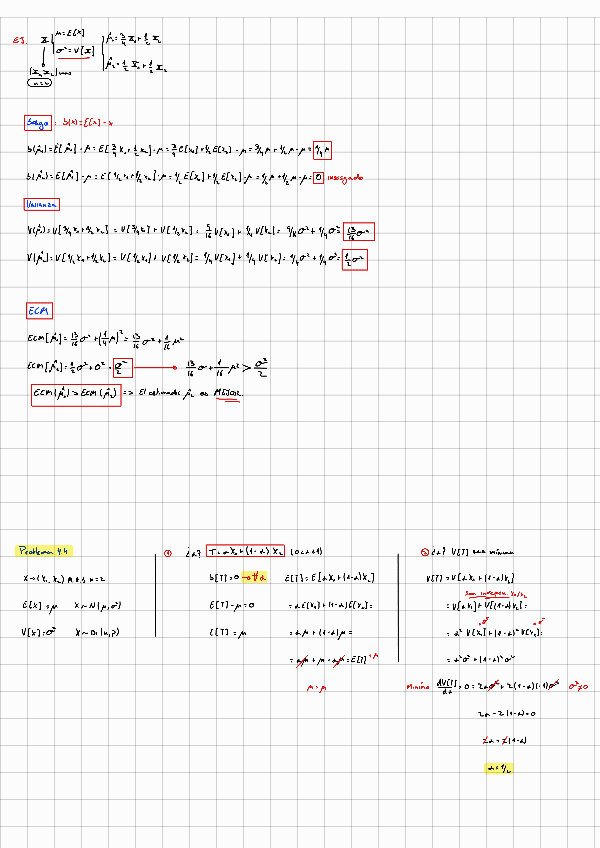 EJ. X { μ = E[X] { μ̂₁ = 3/4 X₁ + 1/2 X₂
σ² = V[X] μ̂₂ = 1/2 X₁ + 1/2 X₂
(X₁, X₂) mas
n=2
Sesgo : b(x) = E[x] - x
b(μ̂₁) = E[μ̂₁] - μ = E[3/4 X₁ + 1/2 X₂] - μ = 3/4 E[X₁] + 1/2 E[X₂] - μ = 3/4 μ + 1/2 μ - μ = 1/4 μ
b(μ̂₂) = E[μ̂₂] - μ = E[1/2 X₁ + 1/2 X₂] - μ = 1/2 E[X₁] + 1/2 E[X₂] - μ = 1/2 μ + 1/2 μ - μ = 0 insesgado
Varianza
V(μ̂₁) = V[3/4 X₁ + 1/2 X₂] = V[3/4 X₁] + V[1/2 X₂] = 9/16 V[X₁] + 1/4 V[X₂] = 9/16 σ² + 1/4 σ² = 13/16 σ²
V(μ̂₂) = V[1/2 X₁ + 1/2 X₂] = V[1/2 X₁] + V[1/2 X₂] = 1/4 V[X₁] + 1/4 V[X₂] = 1/4 σ² + 1/4 σ² = 1/2 σ²
ECM
ECM[μ̂₁] = 13/16 σ² + (1/4 μ)² = 13/16 σ² + 1/16 μ²
ECM[μ̂₂] = 1/2 σ² + 0² = σ²/2 → 13/16 σ + 1/16 μ² > σ²/2
ECM(μ̂₁) > ECM(μ̂₂) => El estimador μ̂₂ es MEJOR.
Problema 4.4
X → (X₁, X₂) m.a.s n=2
E[X] = μ X ~ N(μ, σ²)
V[X] = σ²
① ¿α? T = αX₁ + (1-α) X₂ (0<α<1)
b[T] = 0 → ∀α E[T] = E[αX₁ + (1-α)X₂]
E[T] - μ = 0 = αE[X₁] + (1-α)E[X₂] =
E[T] = μ = αμ + (1-α)μ =
= αμ + μ - αμ = E[T] = μ
μ = μ
② ¿α? V[T] sea mínima
V[T] = V[αX₁ + (1-α)X₂]
Son indepen. X₁/X₂
= V[αX₁] + V[(1-α)X₂] =
= α² V[X₁] + (1-α)² V[X₂] =
= α²σ² + (1-α)²σ²
Mínimo dV[T]/dα = 0 = 2ασ² + 2(1-α)(-1)σ² σ²≠0
2α - 2(1-α) = 0
2α = 2(1-α)
α = 1/2